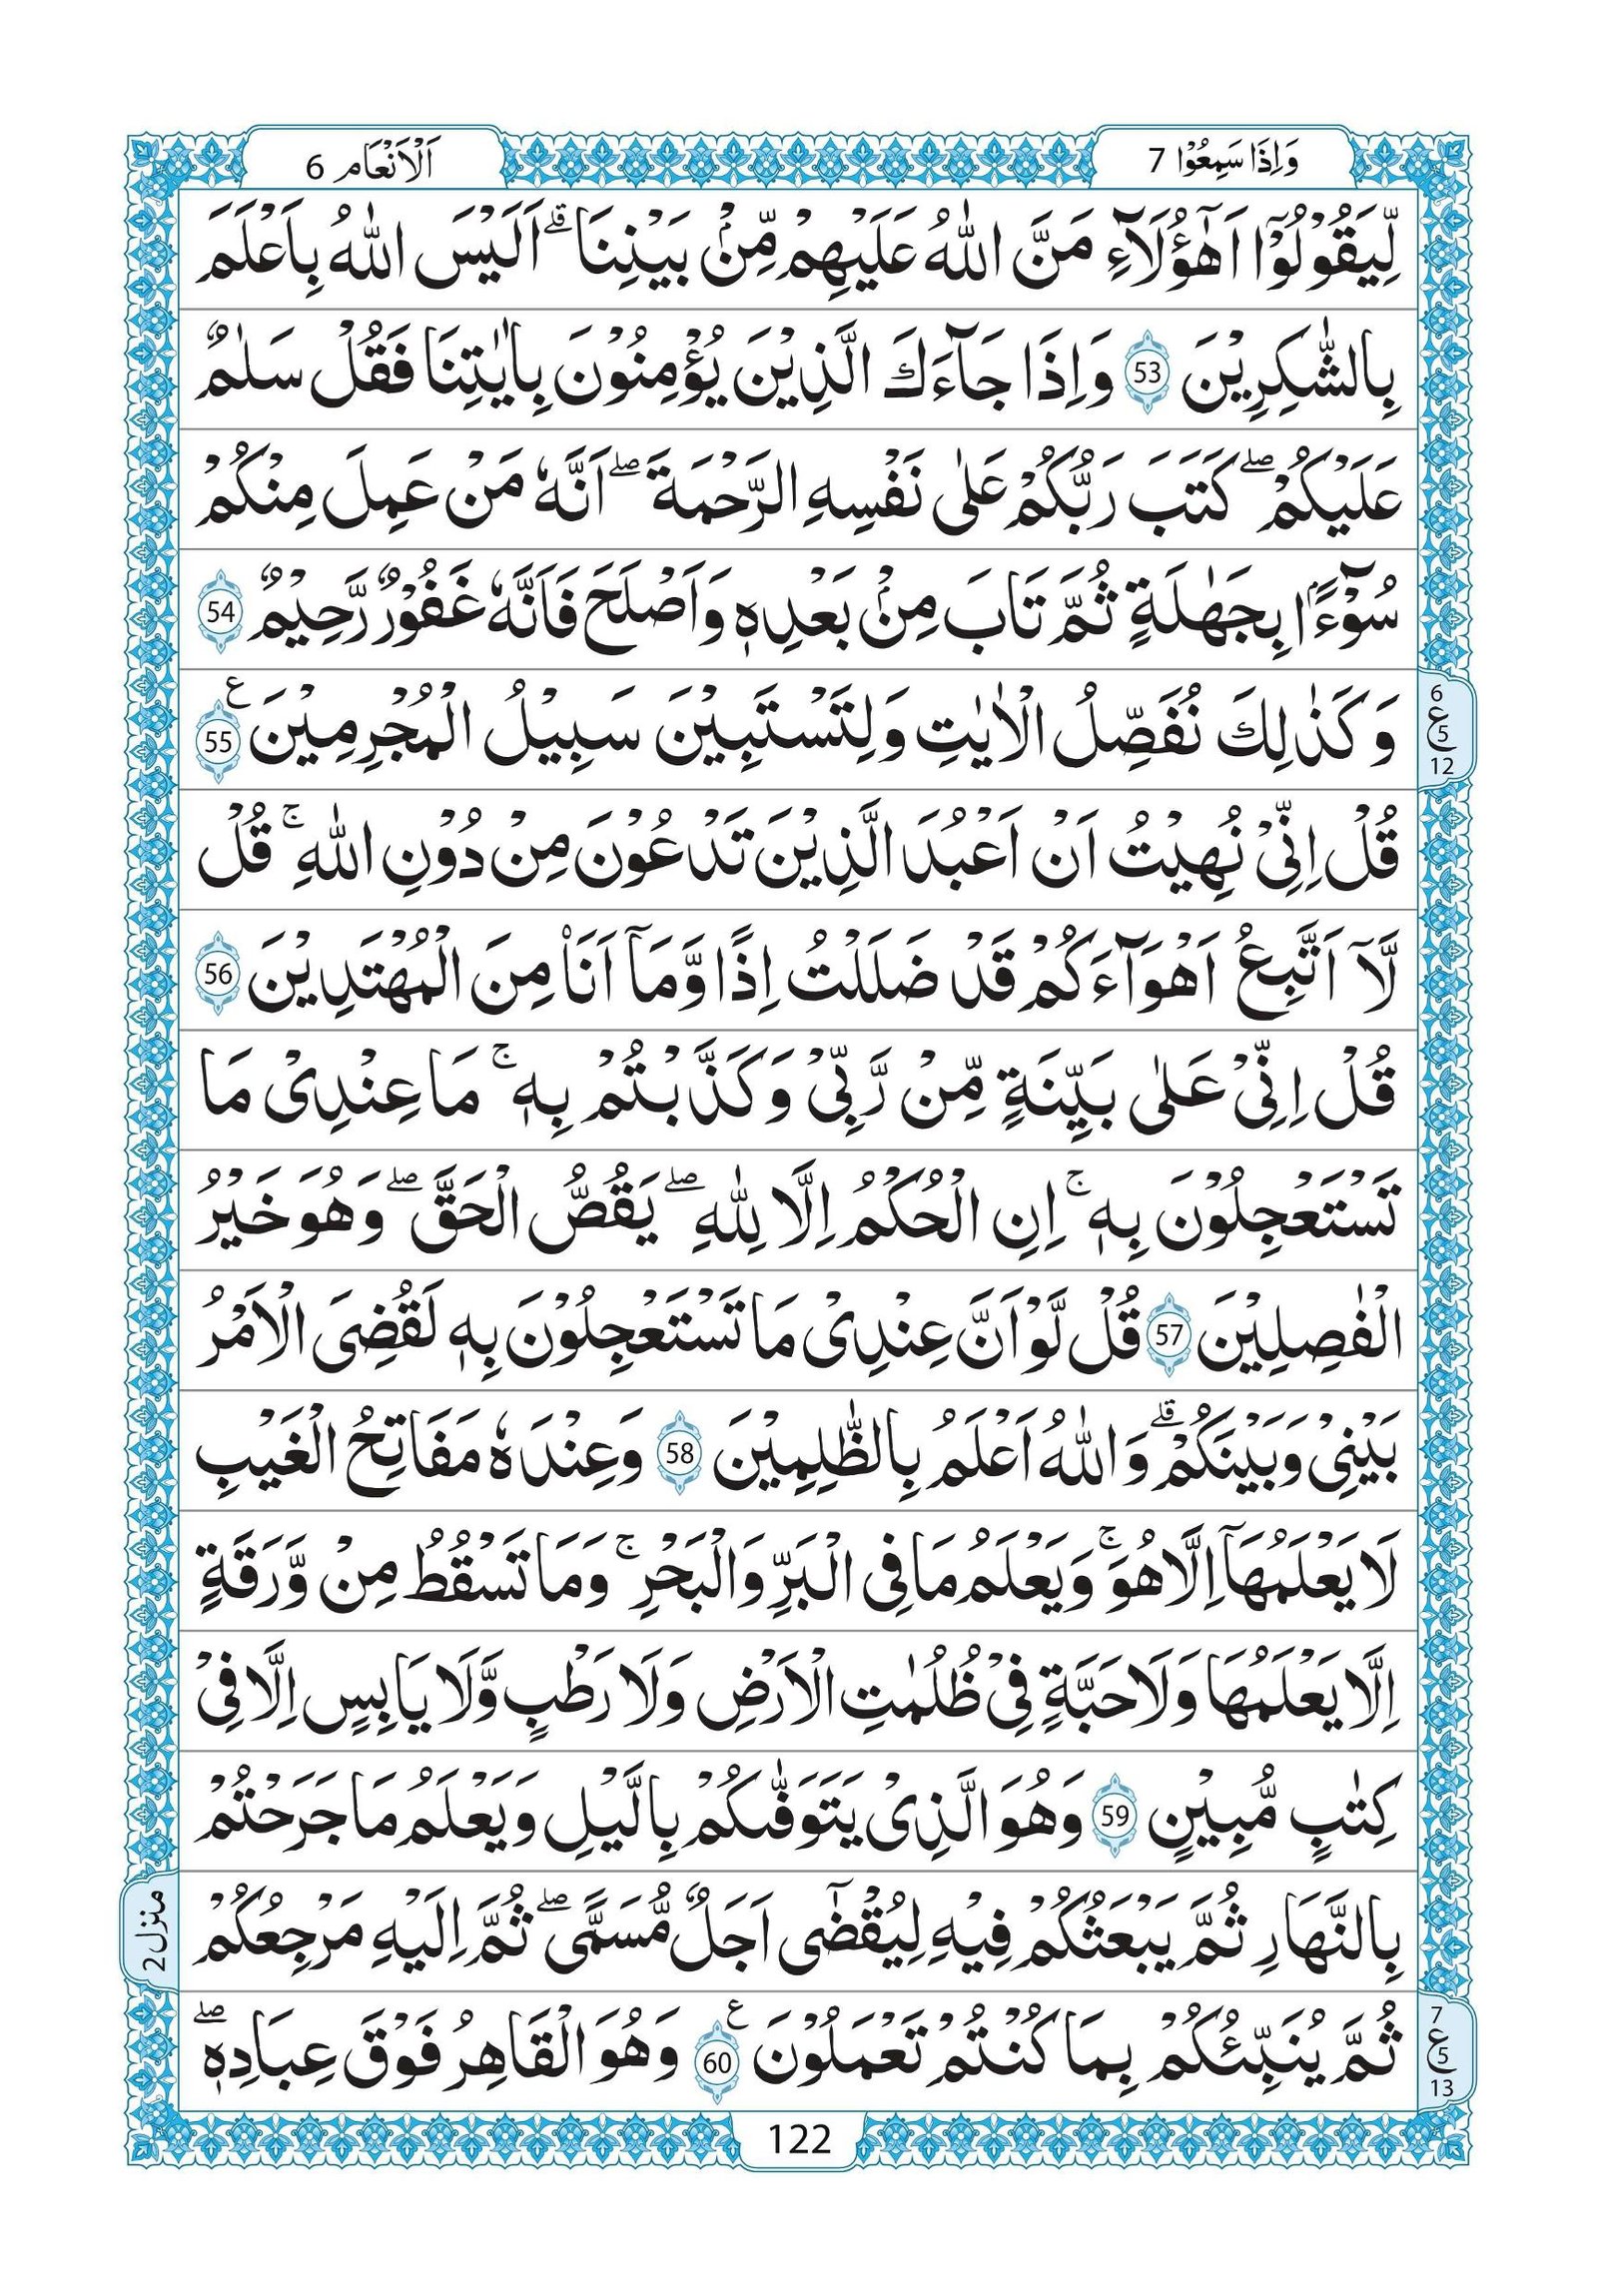 وَاِذَا سَمِعُوْا 7
اَلْاَنْعَام 6
لِّيَقُوْلُوْٓا اَهٰٓؤُلَآءِ مَنَّ اللّٰهُ عَلَيْهِمْ مِّنْۢ بَيْنِنَا ؕ اَلَيْسَ اللّٰهُ بِاَعْلَمَ
بِالشّٰكِرِيْنَ 53 وَاِذَا جَآءَكَ الَّذِيْنَ يُؤْمِنُوْنَ بِاٰيٰتِنَا فَقُلْ سَلٰمٌ
عَلَيْكُمْ ۖ كَتَبَ رَبُّكُمْ عَلٰى نَفْسِهِ الرَّحْمَةَ ۖ اَنَّهٗ مَنْ عَمِلَ مِنْكُمْ
سُوْٓءًۢا بِجَهٰلَةٍ ثُمَّ تَابَ مِنْۢ بَعْدِهٖ وَاَصْلَحَ فَاَنَّهٗ غَفُوْرٌ رَّحِيْمٌ 54
وَكَذٰلِكَ نُفَصِّلُ الْاٰيٰتِ وَلِتَسْتَبِيْنَ سَبِيْلُ الْمُجْرِمِيْنَ ع 55
6 ع 5 12
قُلْ اِنِّىْ نُهِيْتُ اَنْ اَعْبُدَ الَّذِيْنَ تَدْعُوْنَ مِنْ دُوْنِ اللّٰهِ ۚ قُلْ
لَّآ اَتَّبِعُ اَهْوَآءَكُمْ قَدْ ضَلَلْتُ اِذًا وَّمَآ اَنَا۠ مِنَ الْمُهْتَدِيْنَ 56
قُلْ اِنِّىْ عَلٰى بَيِّنَةٍ مِّنْ رَّبِّىْ وَكَذَّبْتُمْ بِهٖ ۚ مَا عِنْدِىْ مَا
تَسْتَعْجِلُوْنَ بِهٖ ۚ اِنِ الْحُكْمُ اِلَّا لِلّٰهِ ۖ يَقُصُّ الْحَقَّ ۖ وَهُوَ خَيْرُ
الْفٰصِلِيْنَ 57 قُلْ لَّوْ اَنَّ عِنْدِىْ مَا تَسْتَعْجِلُوْنَ بِهٖ لَقُضِىَ الْاَمْرُ
بَيْنِىْ وَبَيْنَكُمْ ۗ وَاللّٰهُ اَعْلَمُ بِالظّٰلِمِيْنَ 58 وَعِنْدَهٗ مَفَاتِحُ الْغَيْبِ
لَا يَعْلَمُهَآ اِلَّا هُوَ ۚ وَيَعْلَمُ مَا فِى الْبَرِّ وَالْبَحْرِ ۚ وَمَا تَسْقُطُ مِنْ وَّرَقَةٍ
اِلَّا يَعْلَمُهَا وَلَا حَبَّةٍ فِىْ ظُلُمٰتِ الْاَرْضِ وَلَا رَطْبٍ وَّلَا يَابِسٍ اِلَّا فِىْ
كِتٰبٍ مُّبِيْنٍ 59 وَهُوَ الَّذِىْ يَتَوَفّٰىكُمْ بِالَّيْلِ وَيَعْلَمُ مَا جَرَحْتُمْ
بِالنَّهَارِ ثُمَّ يَبْعَثُكُمْ فِيْهِ لِيُقْضٰٓى اَجَلٌ مُّسَمًّى ۖ ثُمَّ اِلَيْهِ مَرْجِعُكُمْ
منزل 2
ثُمَّ يُنَبِّئُكُمْ بِمَا كُنْتُمْ تَعْمَلُوْنَ ع 60 وَهُوَ الْقَاهِرُ فَوْقَ عِبَادِهٖ ۖ
7 ع 5 13
122